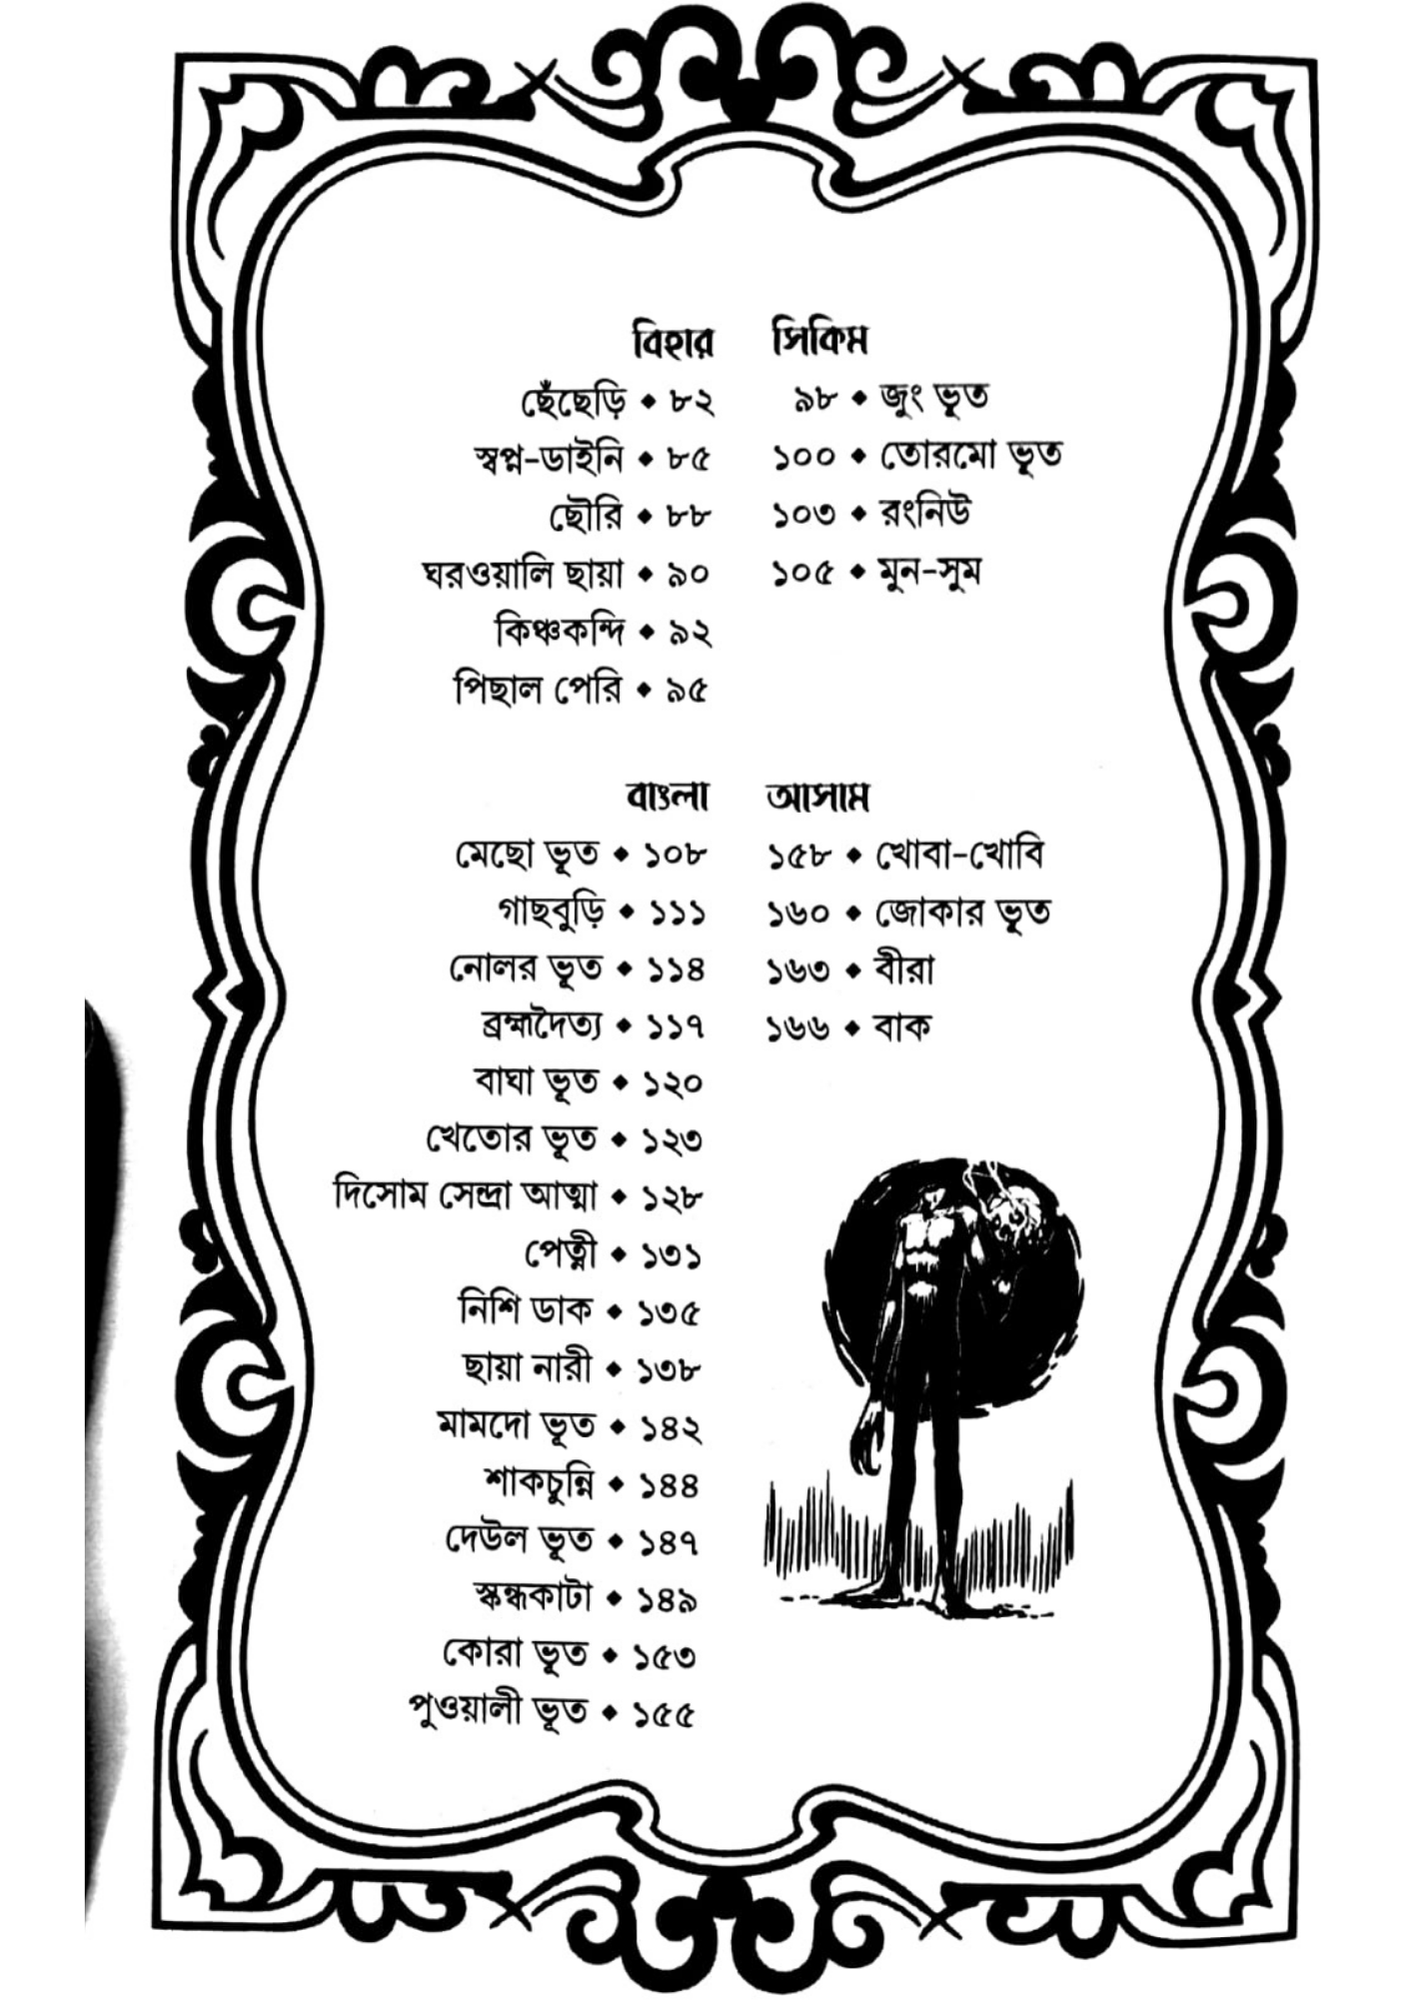 বিহার
ছেঁছেড়ি ◆ ৮২
স্বপ্ন-ডাইনি ◆ ৮৫
ছৌরি ◆ ৮৮
ঘরওয়ালি ছায়া ◆ ৯০
কিঞ্চকন্দি ◆ ৯২
পিছাল পেরি ◆ ৯৫
সিকিম
৯৮ ◆ জুং ভূত
১০০ ◆ তোরমো ভূত
১০৩ ◆ রংনিউ
১০৫ ◆ মুন-সুম
বাংলা
মেছো ভূত ◆ ১০৮
গাছবুড়ি ◆ ১১১
নোলর ভূত ◆ ১১৪
ব্রহ্মদৈত্য ◆ ১১৭
বাঘা ভূত ◆ ১২০
খেতোর ভূত ◆ ১২৩
দিসোম সেন্দ্রা আত্মা ◆ ১২৮
পেত্নী ◆ ১৩১
নিশি ডাক ◆ ১৩৫
ছায়া নারী ◆ ১৩৮
মামদো ভূত ◆ ১৪২
শাকচুন্নি ◆ ১৪৪
দেউল ভূত ◆ ১৪৭
স্কন্ধকাটা ◆ ১৪৯
কোরা ভূত ◆ ১৫৩
পুওয়ালী ভূত ◆ ১৫৫
আসাম
১৫৮ ◆ খোবা-খোবি
১৬০ ◆ জোকার ভূত
১৬৩ ◆ বীরা
১৬৬ ◆ বাক